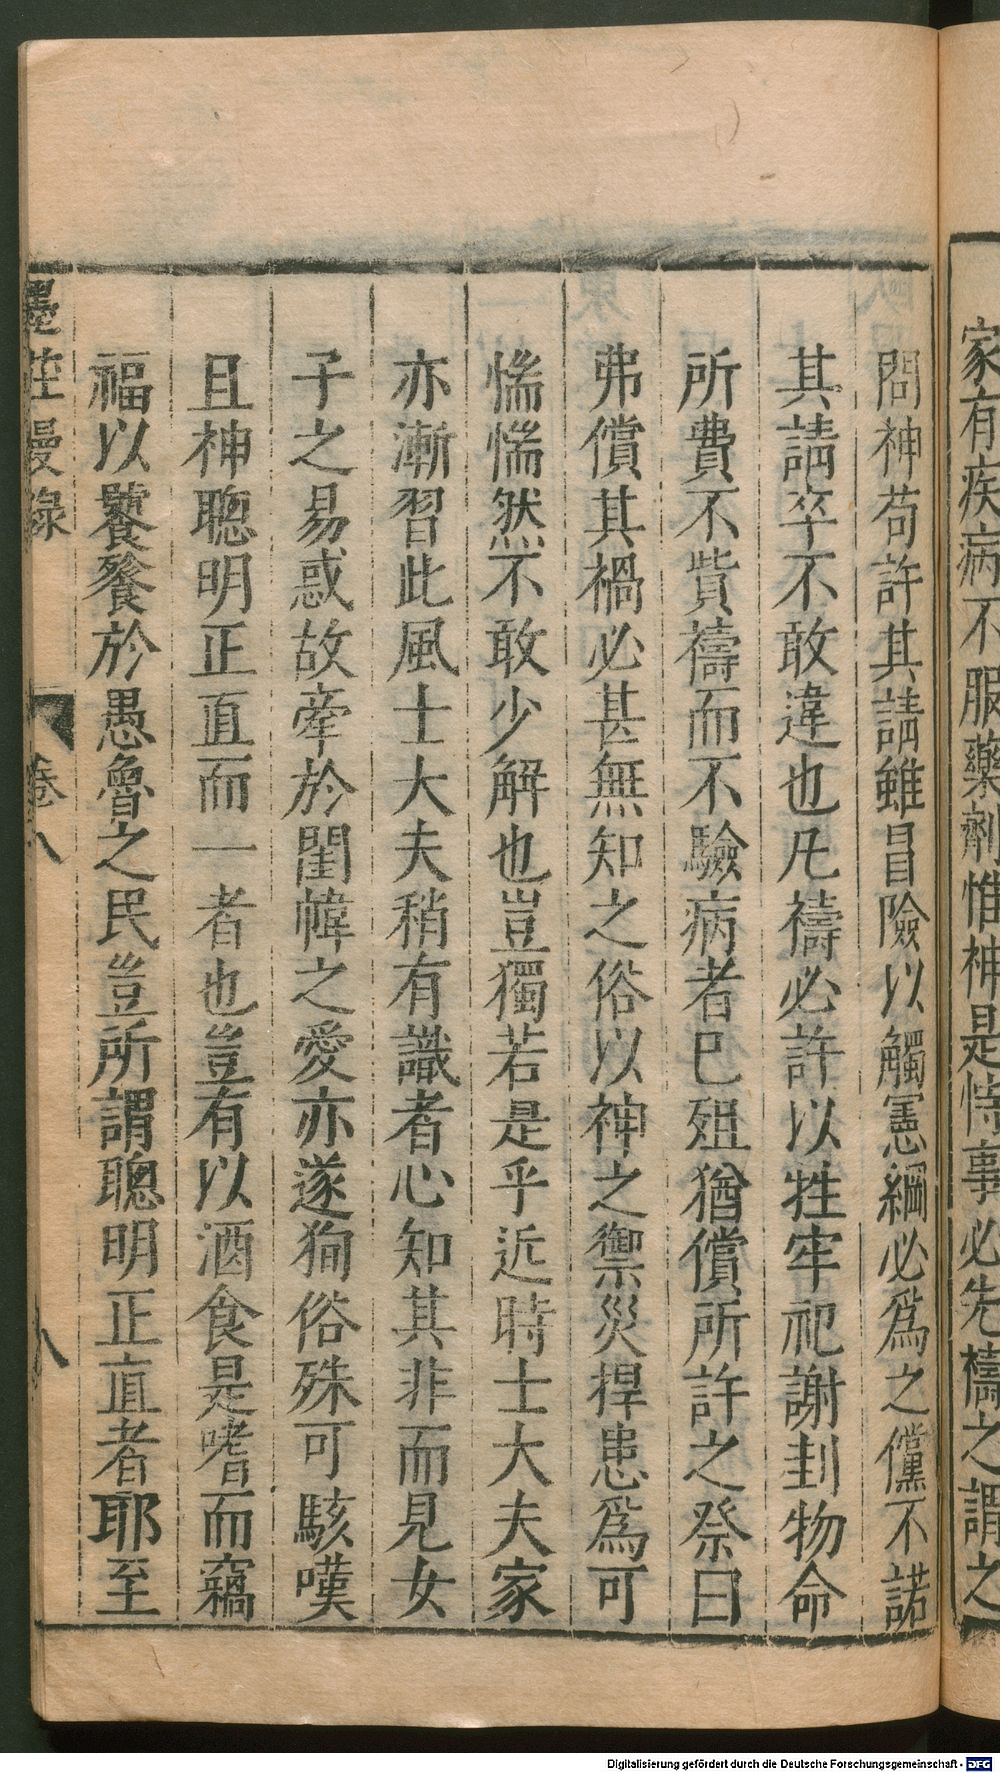 家有疾病不服藥劑惟神是恃事必先禱之謂之
問神苟許其請雖冒險以觸憲綱必爲之儻不諾
其請卒不敢違也凡禱必許以牲牢祀謝刲物命
所費不貲禱而不驗病者巳殂猶償所許之祭曰
弗償其禍必甚無知之俗以神之禦災捍患爲可
惴惴然不敢少解也豈獨若是乎近時士大夫家
亦漸習此風士大夫稍有識者心知其非而見女
子之易惑故牽於閨幃之愛亦遂狥俗殊可駭嘆
且神聰明正直而一者也豈有以酒食是嗜而竊
福以饕餮於愚魯之民豈所謂聰明正直者耶至
墨莊漫錄 卷八 八
Digitalisierung gefördert durch die Deutsche Forschungsgemeinschaft - DFG